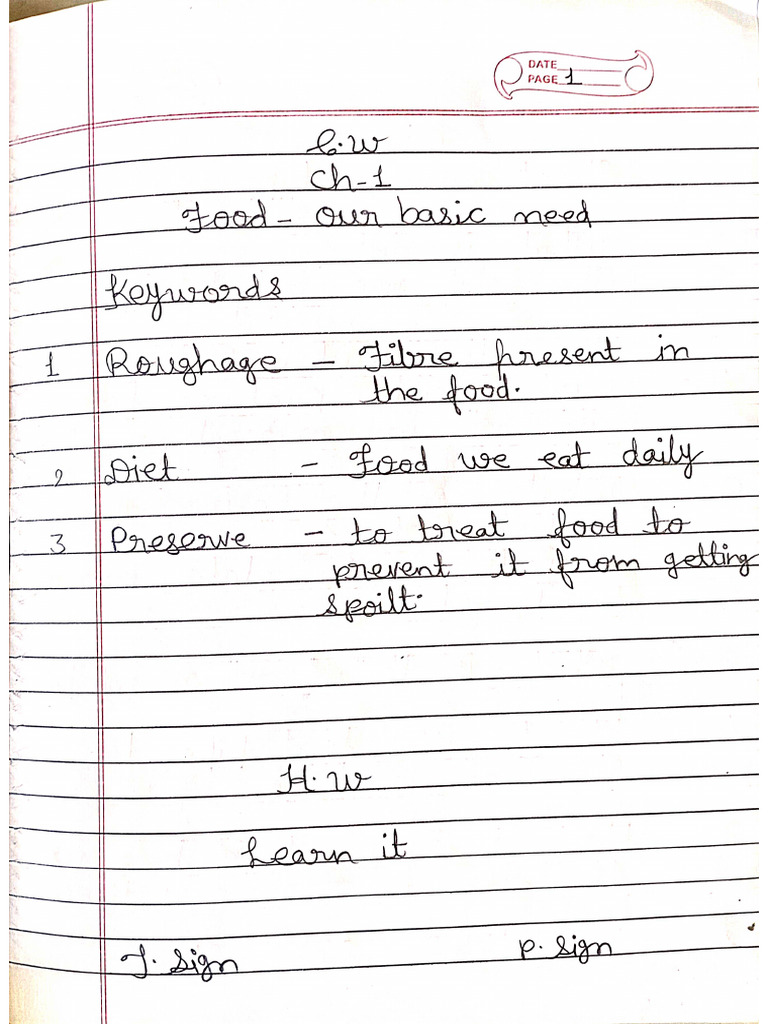 DATE
PAGE 1
C.W
Ch-1
Food - our basic need
Keywords
1 Roughage - Fibre present in
the food.
2 Diet - Food we eat daily
3 Preserve - to treat food to
prevent it from getting
spoilt.
H.W
Learn it
T. Sign
P. Sign